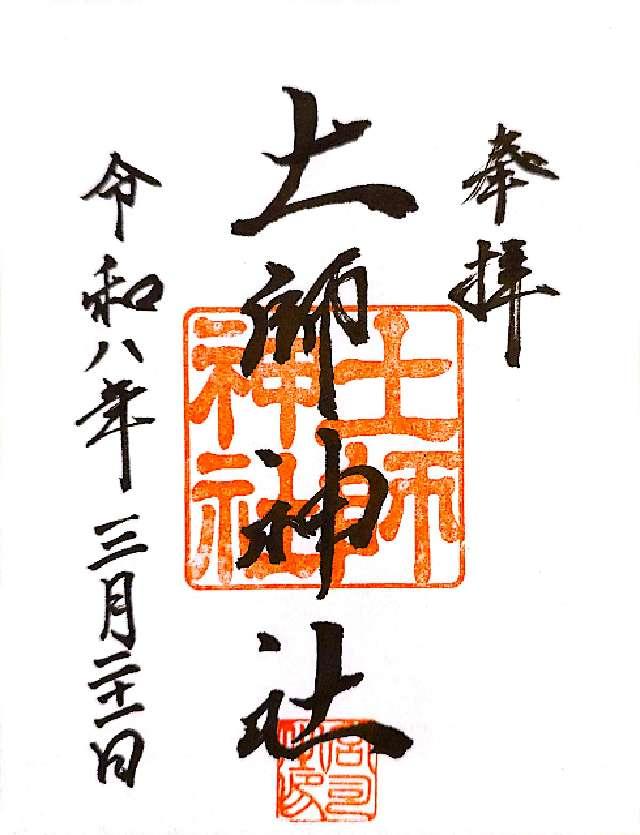 奉拝
土師神社
土師神社
令和八年三月二十一日